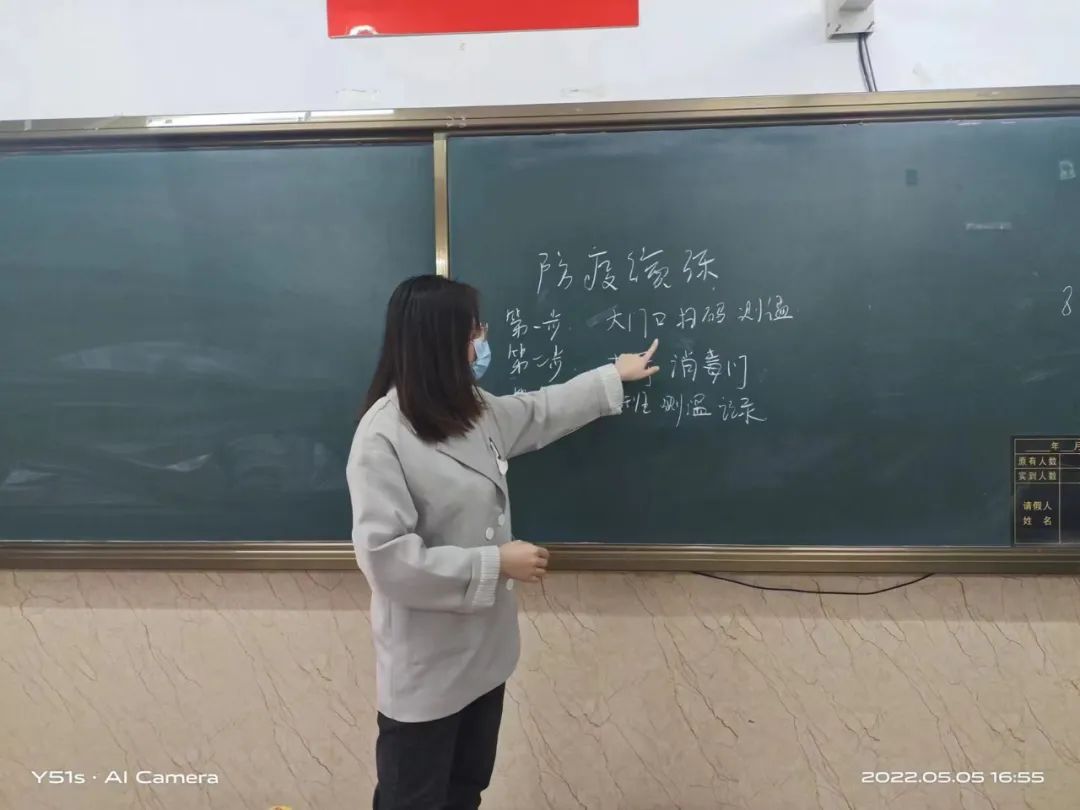 防疫演练
第一步. 大门口扫码测温
第二步. 消毒门
测温记录
年 月
原有人数
实到人数
请假人
姓名
Y51s · AI Camera
2022.05.05 16:55